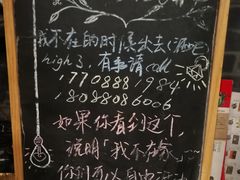 我不在的时候出去(酒吧)
high了,有事请call
17708881984
18088086006
如果你看到这个,
说明「我不在家」~
你们可以自由活动